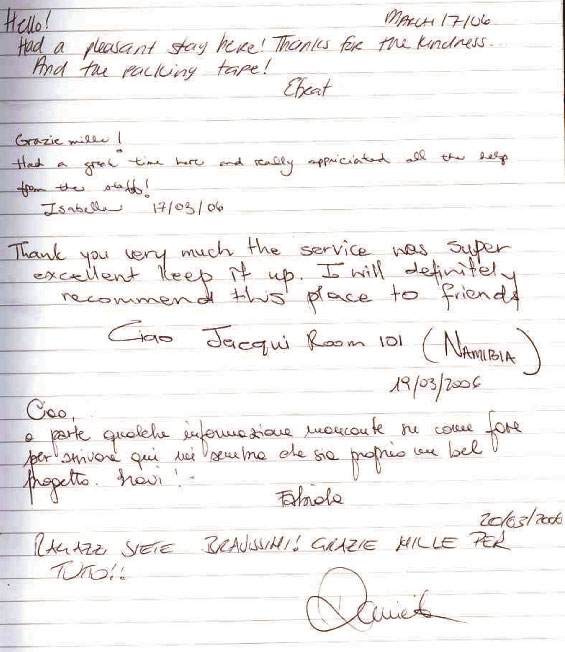 Hello!
MARCH/17/06
Had a pleasant stay here! Thanks for the kindness...
And the packing tape!
Grazie mille!
Had a great time here and really appriciated all the help
from the staff!
Isabelle 17/03/06
Thank you very much the service was super
excellent keep it up. I will definitely
recommend this place to friends
Ciao Jacqui Room 101 (NAMIBIA)
19/03/2006
Ciao,
a parte qualche informazione mancante su come fare
per arrivare qui mi sembra che sia proprio un bel
progetto. Bravi!
Fabiola
20/03/2006
RAGAZZI SIETE BRAVISSIMI! GRAZIE MILLE PER
TUTO!!